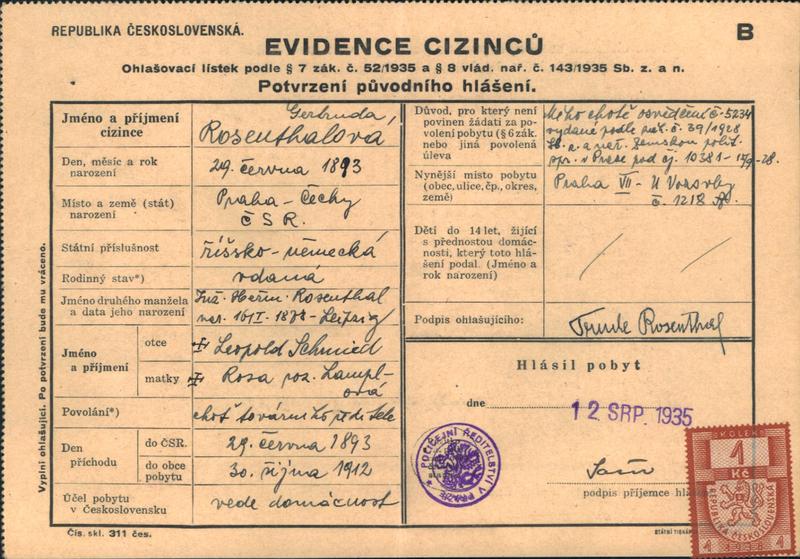 REPUBLIKA ČESKOSLOVENSKÁ.
B
EVIDENCE CIZINCŮ
Ohlašovací lístek podle § 7 zák. č. 52/1935 a § 8 vlád. nař. č. 143/1935 Sb. z. a n.
Potvrzení původního hlášení.
Jméno a příjmení cizince
Gertruda,
Rosenthalova
Den, měsíc a rok narození
29. června 1893
Místo a země (stát) narození
Praha - Čechy
ČSR.
Státní příslušnost
říšsko-německá
Rodinný stav*)
vdaná
Jméno druhého manžela a data jeho narození
Rosenthal
Leipzig
Jméno a příjmení
otce
Leopold Schmied
matky
Rosa roz. Lampl-
ová
Povolání*)
choť továrního ředitele
Den příchodu
do ČSR.
29. června 1893
do obce pobytu
30. října 1912
Účel pobytu v Československu
vede domácnost
Čís. skl. 311 čes.
Vyplní ohlašující. Po potvrzení bude mu vráceno.
Důvod, pro který není povinen žádati za povolení pobytu (§ 6 zák. nebo jiná povolená úleva
Mého chotě osvědčení č. 5234
vydané podle zák. č. 39/1928
Sb. z. a nař. Zemskou polit.
spr. v Praze pod čj. 10381
Nynější místo pobytu (obec, ulice, čp., okres, země)
Praha VII - U Vorovky
č. 1218
Děti do 14 let, žijící s přednostou domácnosti, který toto hlášení podal. (Jméno a rok narození)
Podpis ohlašujícího:
Trude Rosenthal
Hlásil pobyt
dne
12 SRP. 1935
POLICEJNÍ ŘEDITELSTVÍ V PRAZE
podpis příjemce
STÁTNÍ
KOLEK
1
Kč
REPUBLIKA ČESKOSLOVENSKÁ
1
1